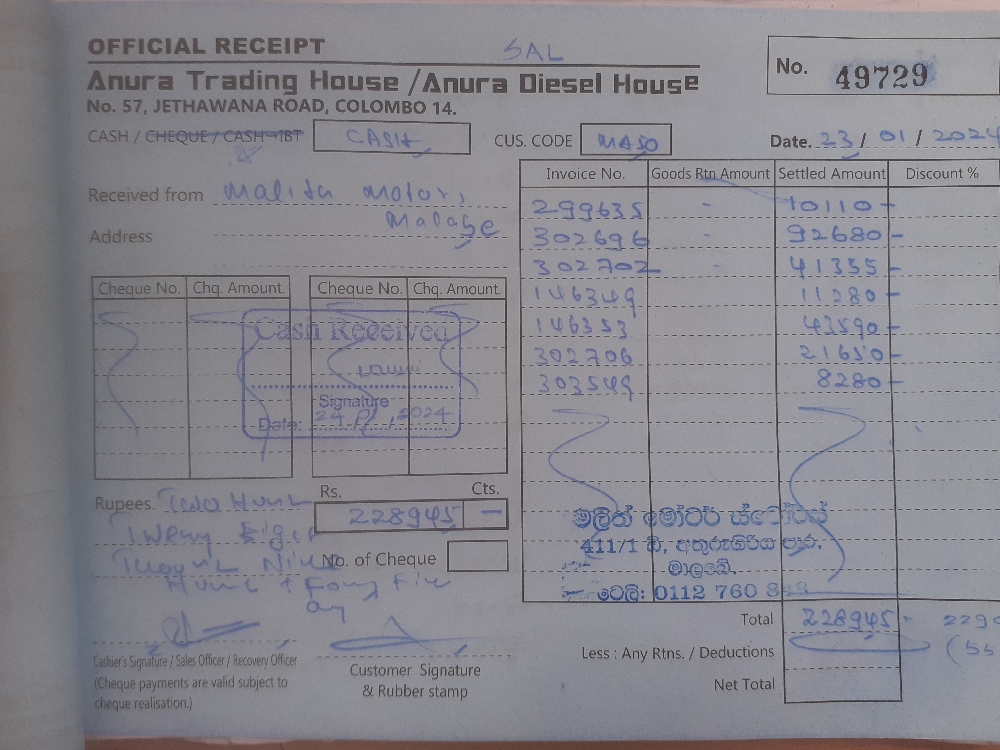 OFFICIAL RECEIPT
SAL
Anura Trading House / Anura Diesel House
No. 57, JETHAWANA ROAD, COLOMBO 14.
No. 49729
CASH / CHEQUE / CASH-IBT CASH
CUS. CODE MA50
Date. 23 / 01 / 2024
Received from Malith Motors,
Malabe
Address
Invoice No. Goods Rtn Amount Settled Amount Discount %
299635 - 10110-
302696 - 92680-
302702 - 41355-
146349 11280-
146353 43590-
302706 21650-
303549 8280-
Cheque No. Chq. Amount. Cheque No. Chq. Amount.
Cash Received
Signature
Date: 24 01, 2024
Rupees. Two Hund
Tweny Eight
Thound Nine
Hund + Fory Five
Rs. Cts.
228945 -
No. of Cheque
මලිත් මෝටර් ස්ටෝර්ස්
411/1 ඩී, අතුරුගිරිය පාර,
මාලබේ.
ටෙලි: 0112 760 848
Total 228945 -
Less : Any Rtns. / Deductions
Net Total
Cashier's Signature / Sales Officer / Recovery Officer
(Cheque payments are valid subject to
cheque realisation.)
Customer Signature
& Rubber stamp